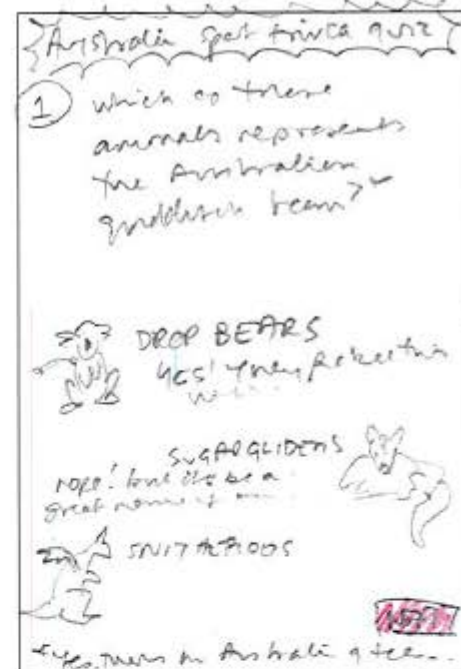 Australia sport trivia quiz
1 which of these
animals represents
the Australian
quidditch team?
DROP BEARS
YES! they
SUGARGLIDERS
NOPE! but it'd be a
great name
NEXT
*yes, there's an Australia q